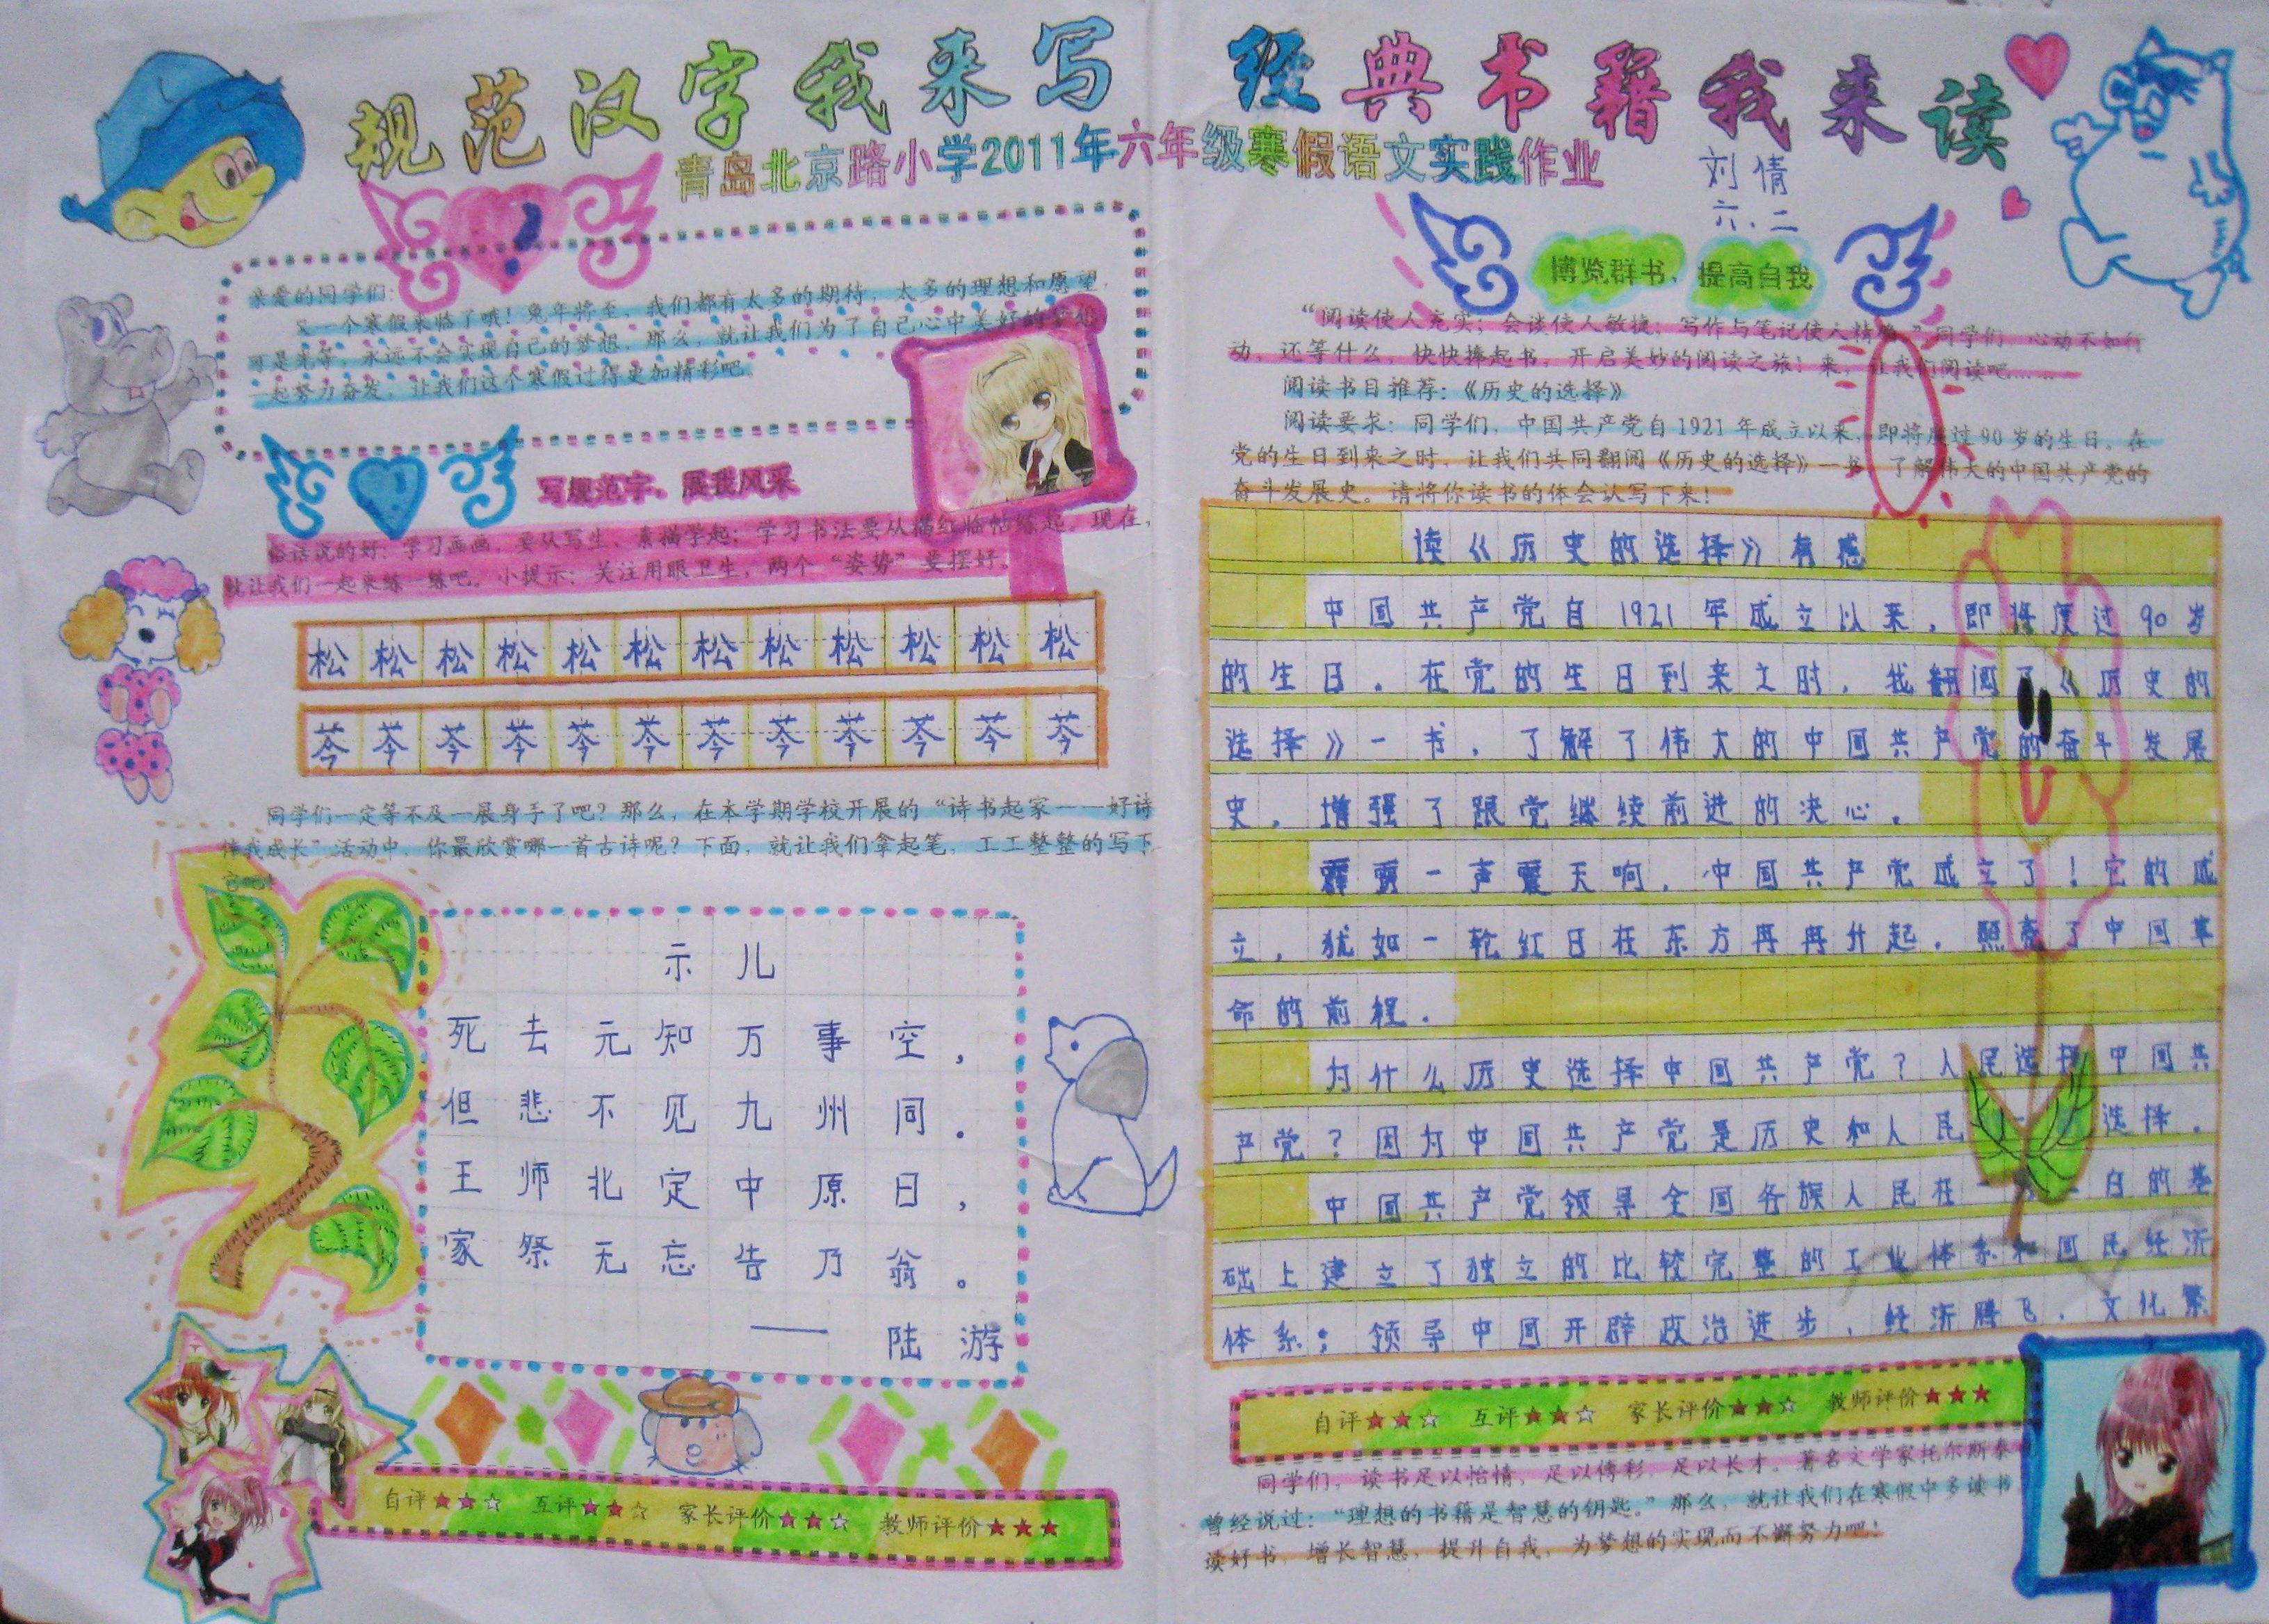 规范汉字我来写 经典书籍我来读
青岛北京路小学2011年六年级寒假语文实践作业
刘倩
六.二
亲爱的同学们：
又一个寒假来临了哦！兔年将至，我们都有太多的期待，太多的理想和愿望，
可是光等，永远不会实现自己的梦想，那么，就让我们为了自己心中美好的梦想
一起努力奋发，让我们这个寒假过得更加精彩吧。
写规范字，展我风采
俗话说的好：学习画画，要从写生、素描学起；学习书法要从描红临帖练起。现在，
就让我们一起来练一练吧。小提示：关注用眼卫生，两个“姿势”要摆好。
松松松松松松松松松松松松
芩芩芩芩芩芩芩芩芩芩芩芩
同学们一定等不及一展身手了吧？那么，在本学期学校开展的“诗书起家——好诗
伴我成长”活动中，你最欣赏哪一首古诗呢？下面，就让我们拿起笔，工工整整的写下
它吧！
示儿
死去元知万事空，
但悲不见九州同．
王师北定中原日，
家祭无忘告乃翁。
——陆游
自评★★☆ 互评★★☆ 家长评价★★☆ 教师评价★★★
博览群书、提高自我
“阅读使人充实；会谈使人敏捷；写作与笔记使人精确。”同学们，心动不如行
动，还等什么，快快捧起书，开启美妙的阅读之旅！来，让我们阅读吧……
阅读书目推荐：《历史的选择》
阅读要求：同学们，中国共产党自1921年成立以来，即将度过90岁的生日。在
党的生日到来之时，让我们共同翻阅《历史的选择》一书，了解伟大的中国共产党的
奋斗发展史。请将你读书的体会认写下来！
读《历史的选择》有感
中国共产党自1921年成立以来，即将度过90岁
的生日．在党的生日到来之时，我翻阅了《历史的
选择》一书，了解了伟大的中国共产党的奋斗发展
史，增强了跟党继续前进的决心．
霹雳一声震天响，中国共产党成立了！它的成
立，犹如一轮红日在东方冉冉升起，照亮了中国革
命的前程．
为什么历史选择中国共产党？人民选择中国共
产党？因为中国共产党是历史和人民 选择．
中国共产党领导全国各族人民在一 二白的基
础上建立了独立的比较完整的工业体系和国民经济
体系；领导中国开辟政治进步，经济腾飞，文化繁
自评★★☆ 互评★★☆ 家长评价★★☆ 教师评价★★★
同学们，读书足以怡情，足以傅彩，足以长才。著名文学家托尔斯泰
曾经说过：“理想的书籍是智慧的钥匙。”那么，就让我们在寒假中多读书，
读好书，增长智慧，提升自我，为梦想的实现而不懈努力吧！